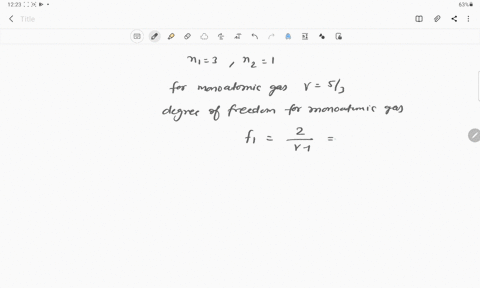 12:23
63%
Title
n₁=3 , n₂=1
for monoatomic gas γ = 5/3
degree of freedom for monoatomic gas
f₁ = 2/(γ-1) =